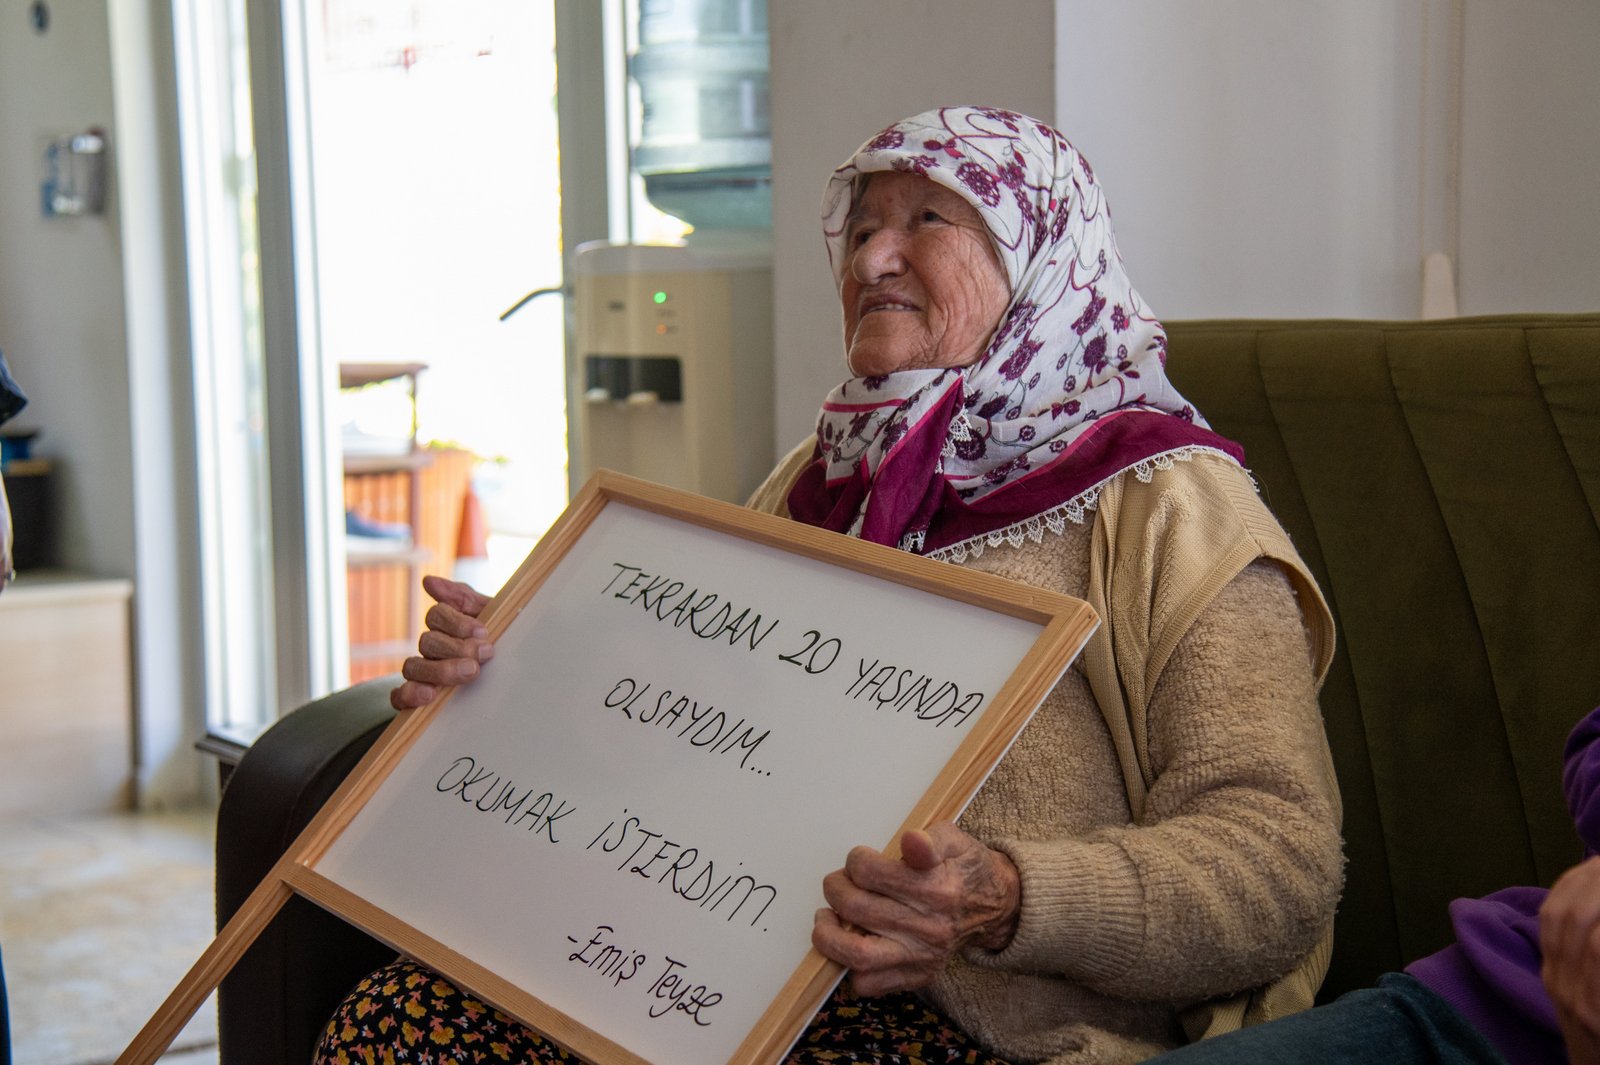 TEKRARDAN 20 YAŞINDA
OLSAYDIM...
OKUMAK İSTERDİM.
-Emiş Teyze